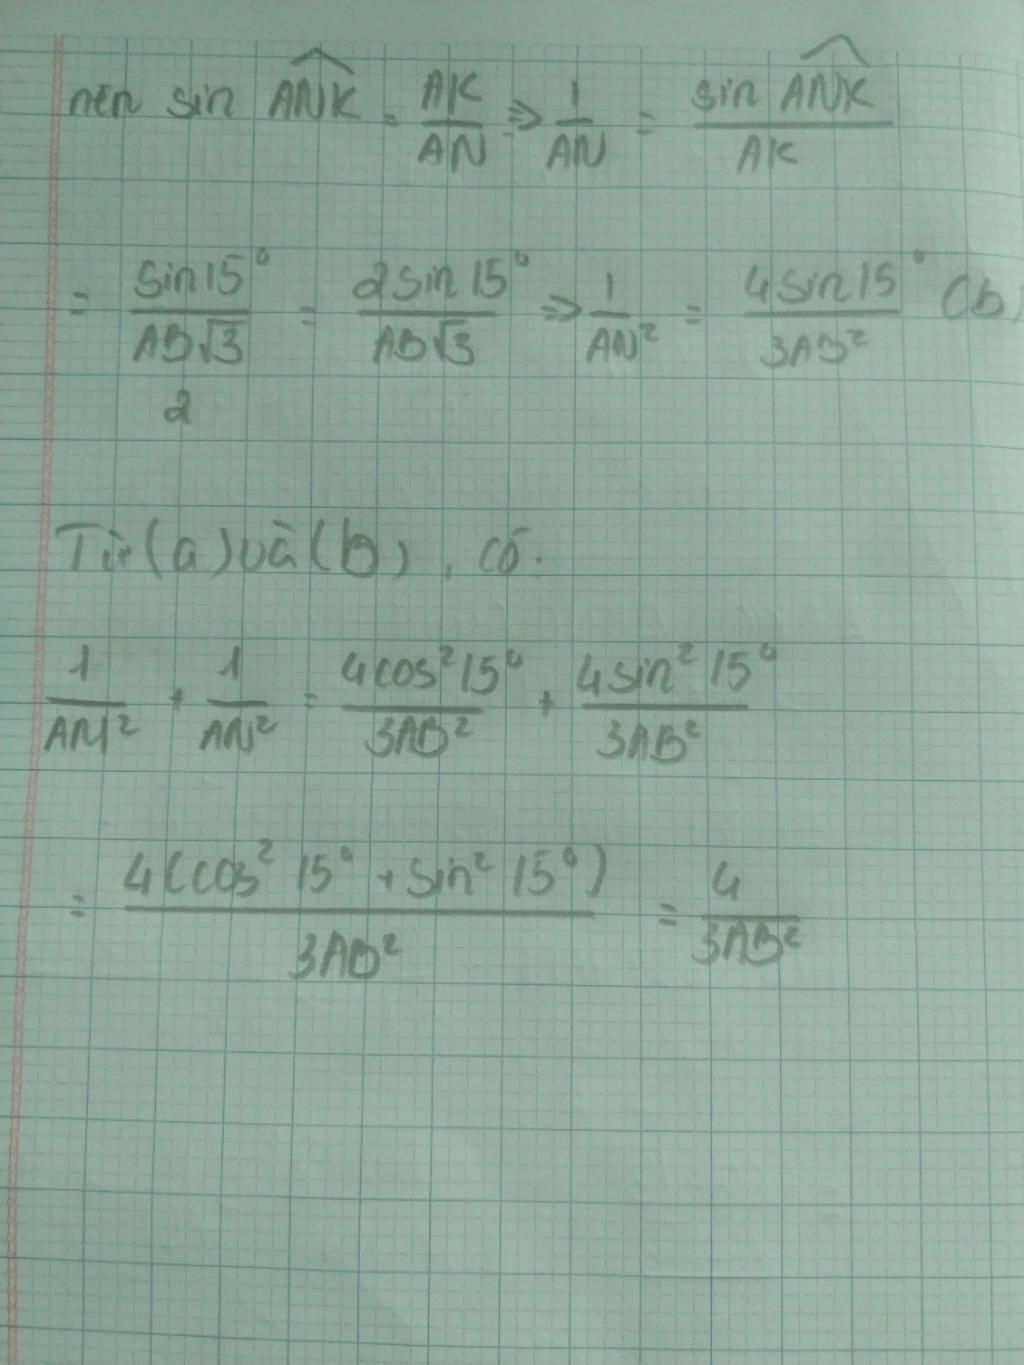 nên sin ANK = AK/AN => 1/AN = sin ANK/AK
= sin15°/(AB√3/2) = 2sin15°/AB√3 => 1/AN² = 4sin15°/3AB² (b)
Từ (a) và (b), có.
1/AM² + 1/AN² = 4cos²15°/3AB² + 4sin²15°/3AB²
= 4(cos²15° + sin²15°)/3AB² = 4/3AB²